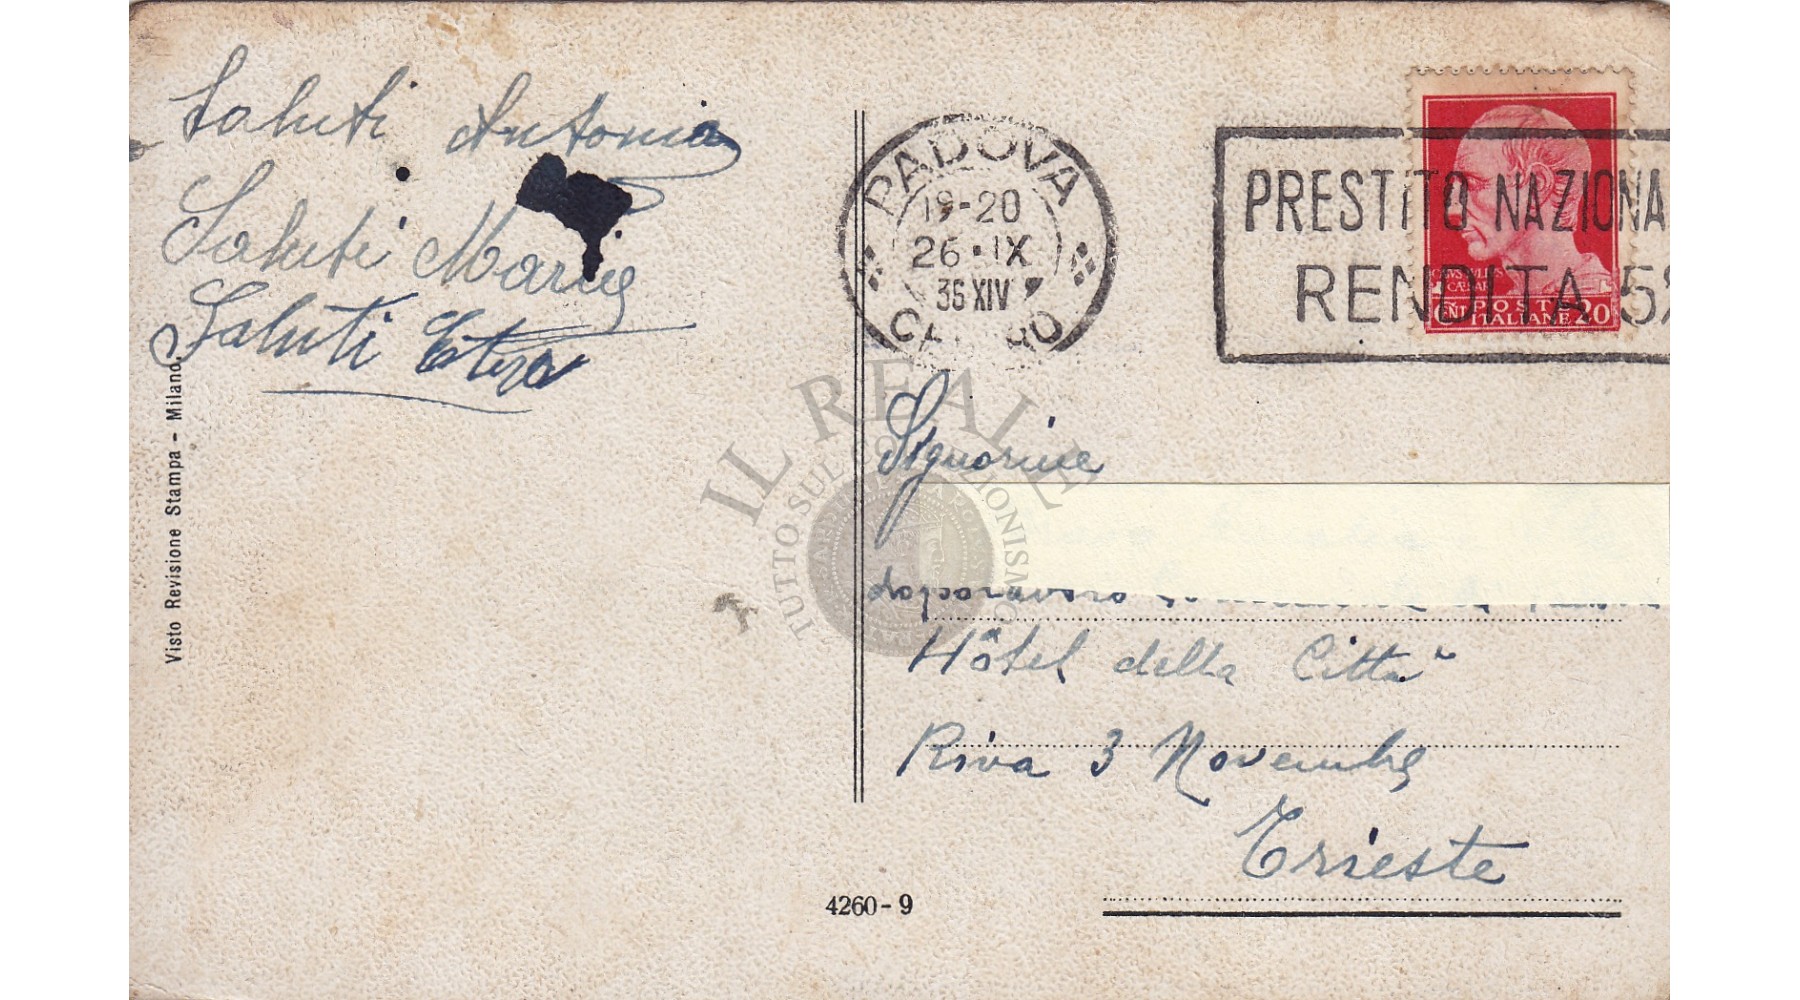 Saluti Antonia
Saluti Maria
Saluti
Visto Revisione Stampa - Milano.
PADOVA
19-20
26·IX
36 XIV
PRESTITO NAZIONA
RENDITA 5%
CAIVS IVLIVS
CAESAR
CENT POSTE
ITALIANE 20
IL REALE
TUTTO SUL COLLEZIONISMO
Signorine
Hôtel della Città
Riva 3 Novembre
Trieste
4260-9